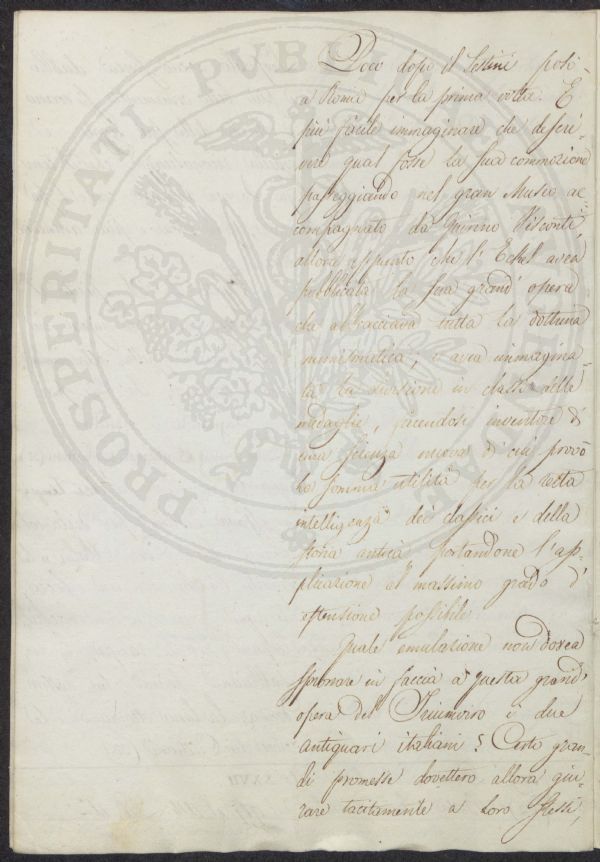 Poco dopo il Sestini portò
a Roma per la prima volta. E
più facile immaginare che descri-
vere qual fosse la sua commozione
passeggiando nel gran Museo ac-
compagnato da Quirino Visconti,
allora appunto che l'Echel avea
pubblicata la sua grand' opera
che abbracciava tutta la dottrina
numismatica; e avea immagina-
ta la divisione in classi delle
medaglie, facendosi inventore d'
una scienza nuova di cui provò
la somma utilità per la retta
intelligenza dei classici e della
storia antica portandone l'ap-
plicazione al massimo grado d'
estensione possibile.
Quale emulazione non dovea
spronare in faccia a questa grand'
opera del Triumviro i due
antiquari italiani? Certo gran-
di promesse dovettero allora giu-
rare tacitamente a loro stessi,
PROSPERITATI PUBLICAE